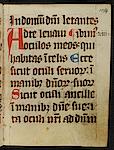 In domum dni letantes
Ad te leuaui ibim
oculos meos qui
habitas in celis Ecce
sicut oculi seruorum in
manibus dnorum suorum
Sicut oculi ancille
in manibus dne sue
ita oculi nri ad dnm